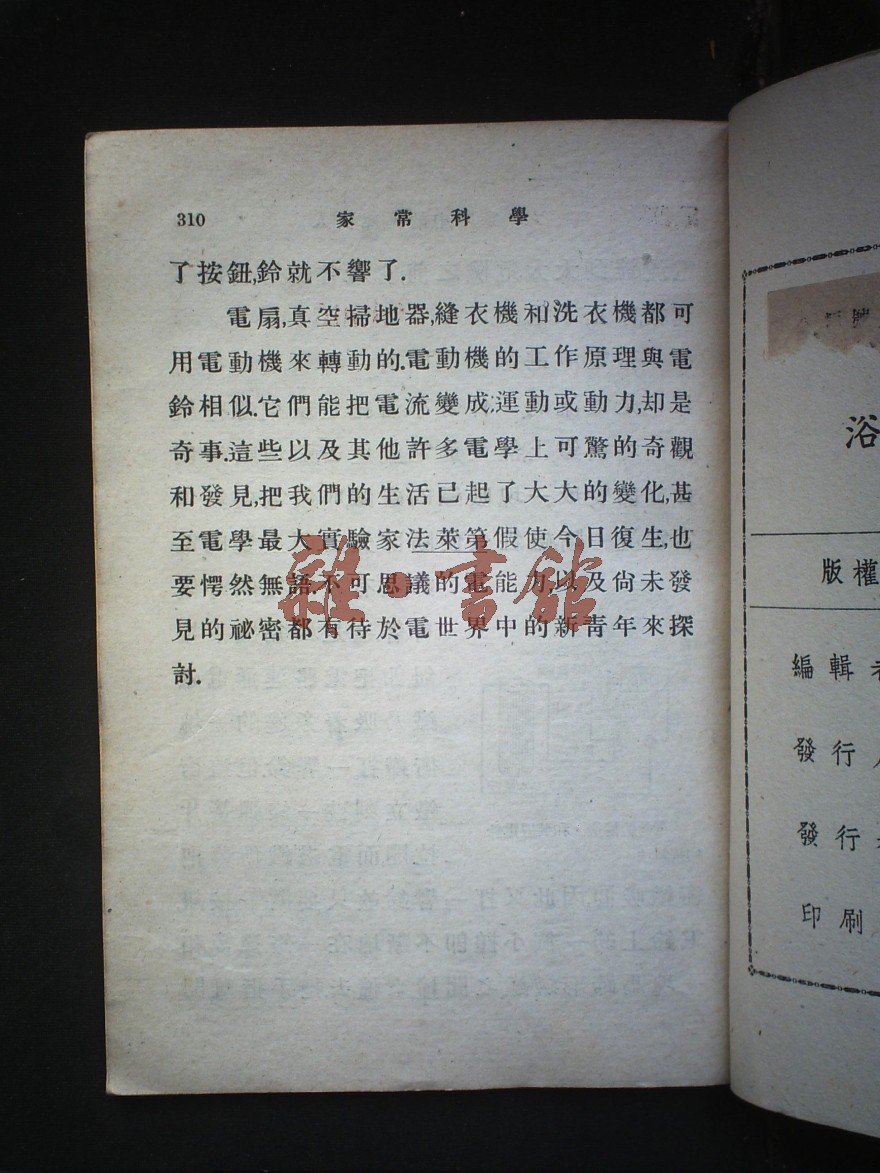 310 家常科學
了按鈕,鈴就不響了.
電扇,真空掃地器,縫衣機和洗衣機都可
用電動機來轉動的.電動機的工作原理與電
鈴相似.它們能把電流變成運動或動力,却是
奇事.這些以及其他許多電學上可驚的奇觀
和發見,把我們的生活已起了大大的變化,甚
至電學最大實驗家法萊第假使今日復生,也
要愕然無語.不可思議的電能力以及尙未發
見的祕密都有待於電世界中的新青年來探
討.
雜·書館
浴
版權
編輯
發行
發行
印刷